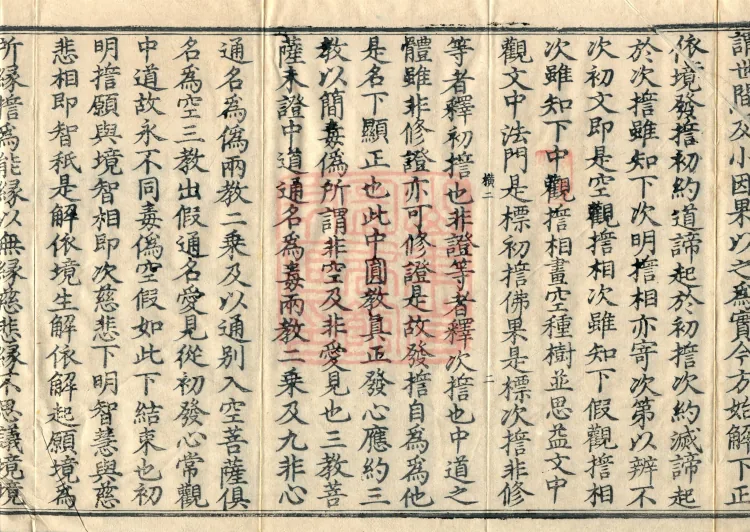 謂世間及小因果以之為實今方始解下正
依境發揞初約道諦起於初揞次約滅諦起
於次揞雖知下次明揞相亦寄次第以辨不
次初文即是空觀揞相次雖知下假觀揞相
次雖知下中觀揞相畫空種樹並思益文中
觀文中法門是標初揞佛果是標次揞非修
横二
二
等者釋初揞也非證等者釋次揞也中道之
體雖非修證亦可修證是故發揞自為為他
是名下顯正也此中圓教真正發心應約三
教以簡毒偽所謂非空及非愛見也三教菩
薩未證中道通名為毒兩教二乘及九非心
通名為偽兩教二乘及以通別入空菩薩俱
名為空三教出假通名愛見從初發心常觀
中道故永不同毒偽空假如此下結束也初
明揞願與境智相即次慈悲下明智慧與慈
悲相即智秖是解依境生解依解起願境為
所緣揞為能緣以無緣慈悲緣不思議境境